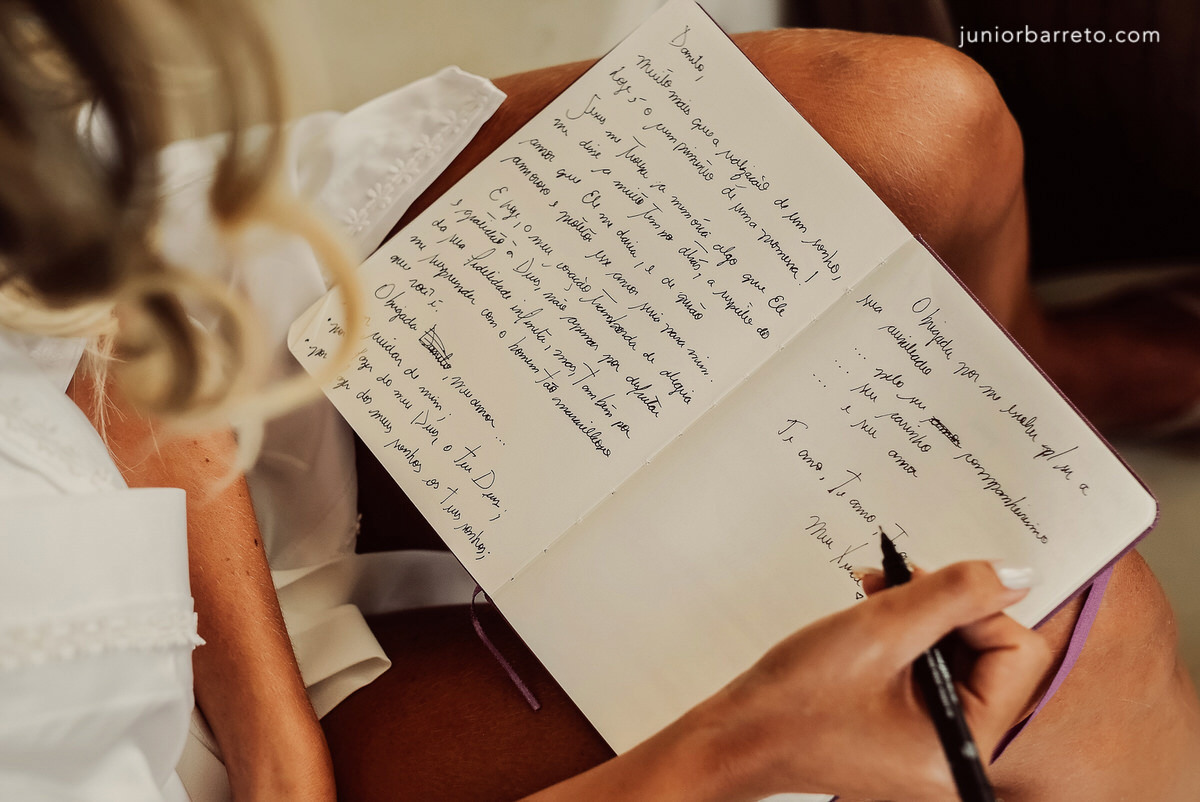 juniorbarreto.com
Danilo,
Muito mais que a realização de um sonho,
hoje é o cumprimento de uma promessa!
Jesus me trouxe a memória algo que Ele
me disse a muito tempo atrás, a respeito do
amor que Ele me daria, e de quão
amoroso e seria esse amor para mim.
E hoje, o meu coração transborda de alegria
e gratidão à Deus, não apenas por desfrutar
da sua fidelidade infinita, mas, também por
me surpreender com o homem tão maravilhoso
que você é.
Obrigada, meu amor...
cuidar de mim;
do meu Deus, o teu Deus;
dos meus sonhos os teus sonhos;
Obrigada por me escolher p/ ser a
sua auxiliadora
.... pelo seu companheirismo
.... seu carinho
e seu amor
Te amo, Te amo, Te
Meu